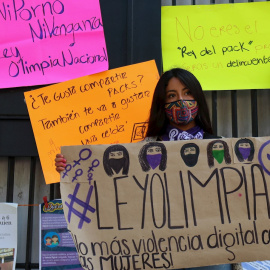 Ni Porno
Ni Venganza
Ley
Olimpia Nacional
No eres el
"Rey del pack"
un
delincuente
¿Te gusta compartir
PACKS?
También te va a gustar
compartir
una celda
#LEYOLIMPIA
No más violencia digital a
LAS MUJERES!